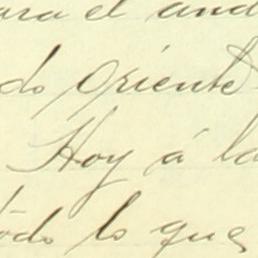 ara el and
do Oriente
Hoy á la
todo lo que